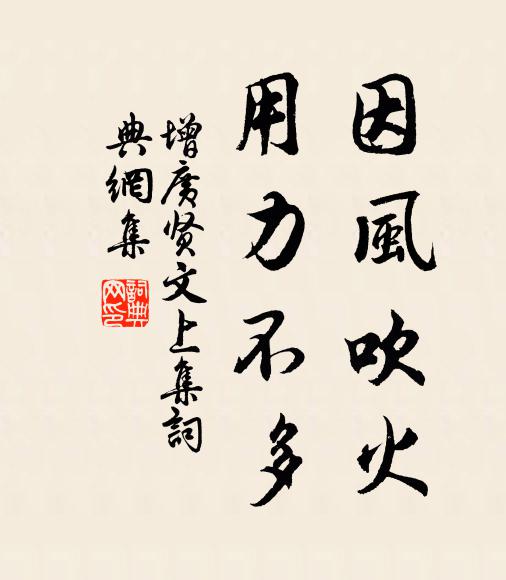 因風吹火
用力不多
增廣贤文上集詞
典網集
詞典
网印